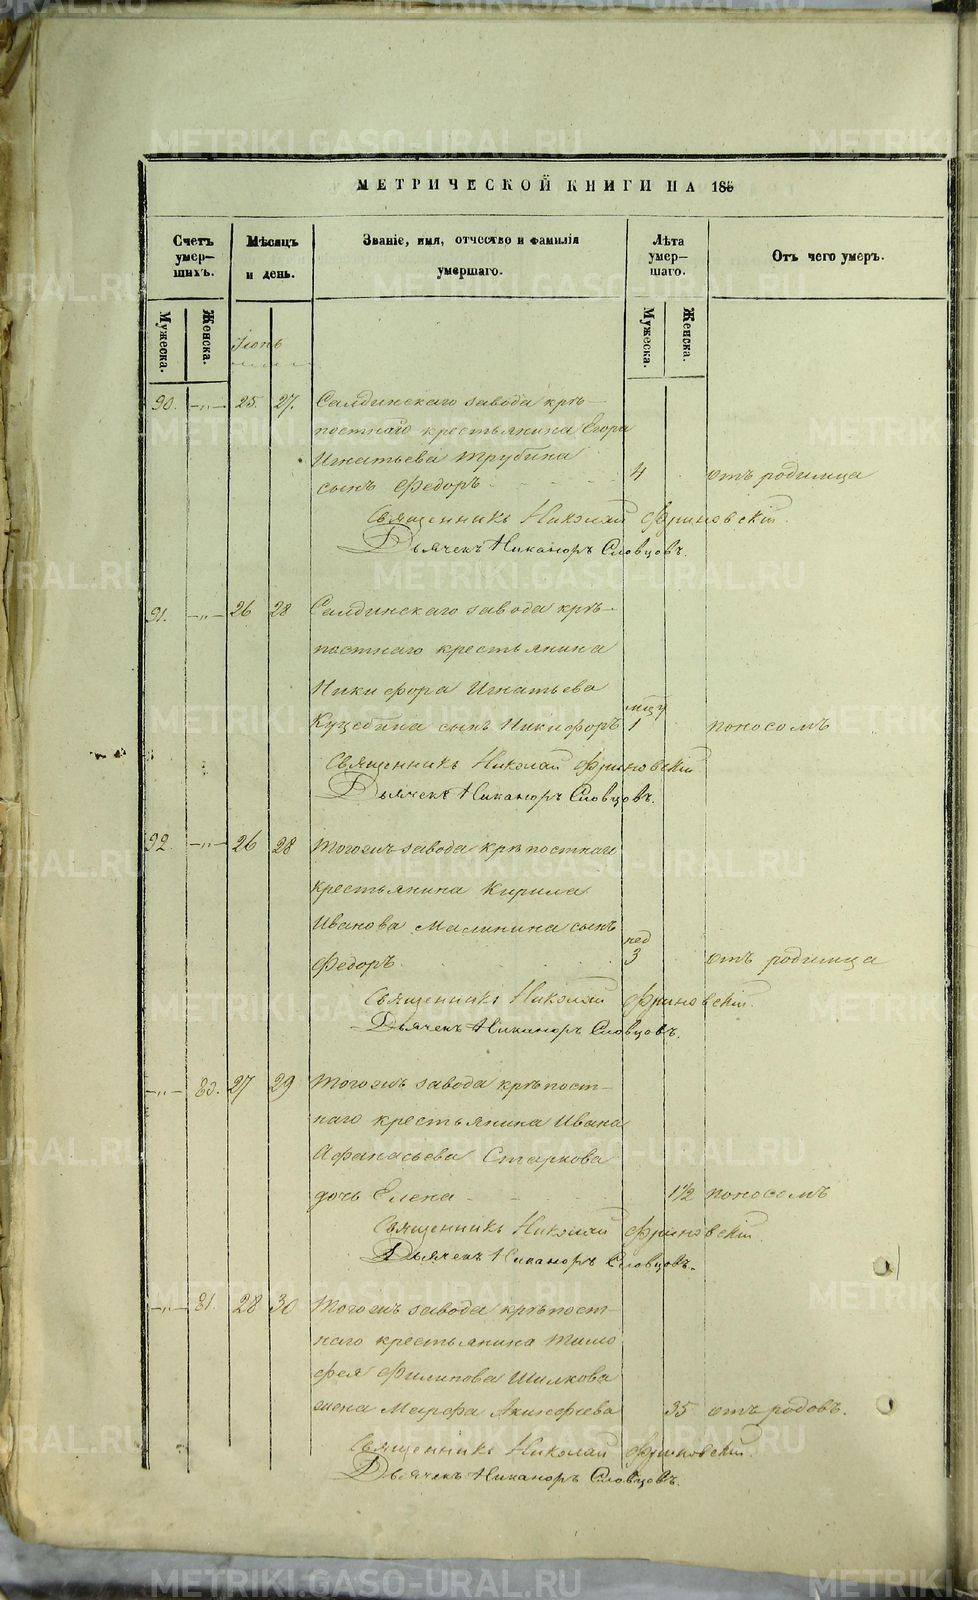 МЕТРИЧЕСКОЙ КНИГИ НА 185
Счетъ умер-шихъ.
Мѣсяцъ и день.
Званіе, имя, отчество и фамилія умершаго.
Лѣта умер-шаго.
Отъ чего умеръ.
Мужеска.
Женска.
Мужеска.
Женска.
Іюнь
90. —„— 25. 27. Салдинскаго завода крѣ-
постнаго крестьянина Егора
Игнатьева Трубина
сынъ Федоръ 4 отъ родимца
Священникъ Николай Фриновскій.
Дьячекъ Никаноръ Словцовъ.
91. —„— 26 28 Салдинскаго завода крѣ-
постнаго крестьянина
Никифора Игнатьева
мцъ
сынъ Никифоръ 1 поносомъ
Священникъ Николай Фриновскій
Дьячекъ Никаноръ Словцовъ.
92. —„— 26 28 Тогожъ завода крѣпостнаго
крестьянина Кирила
Иванова Малинина сынъ
нед
Федоръ 3 отъ родимца
Священникъ Николай Фриновскій.
Дьячекъ Никаноръ Словцовъ.
—„— 27 29 Тогожъ завода крѣпост-
наго крестьянина Ивана
Афанасьева Старкова
дочь Елена 1 1/2 поносомъ
Священникъ Николай Фриновскій.
Дьячекъ Никаноръ Словцовъ.
—„— 81. 28 30 Тогожъ завода крѣпост-
наго крестьянина Тимо
фея Филипова Шилкова
жена Марфа 35 отъ родовъ.
Священникъ Николай Фриновскій.
Дьячекъ Никаноръ Словцовъ.
METRIKI.GASO-URAL.RU